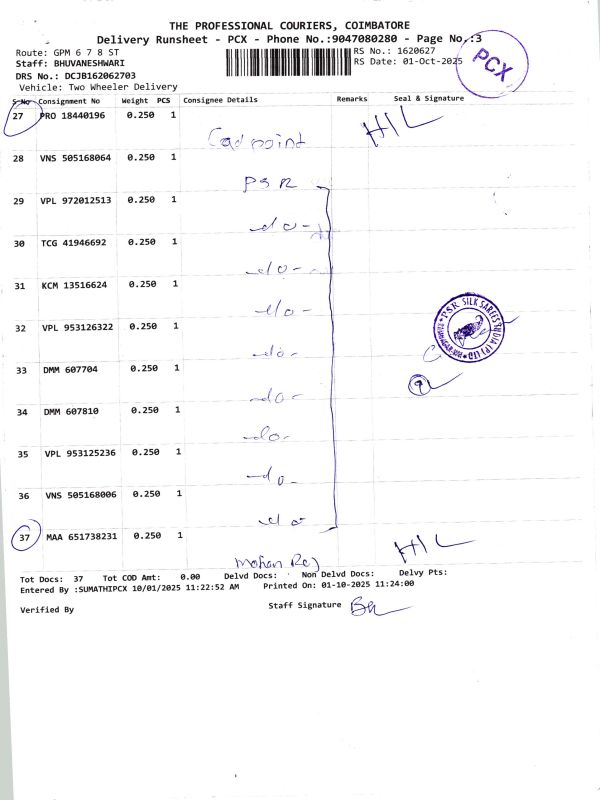 THE PROFESSIONAL COURIERS, COIMBATORE
Delivery Runsheet - PCX - Phone No.:9047080280 - Page No.:3
Route: GPM 6 7 8 ST
RS No.: 1620627
Staff: BHUVANESHWARI
RS Date: 01-Oct-2025
PCX
DRS No.: DCJB162062703
Vehicle: Two Wheeler Delivery
S.No Consignment No Weight PCS Consignee Details Remarks Seal & Signature
27 PRO 18440196 0.250 1
Cad point
HIL
28 VNS 505168064 0.250 1
PSR
29 VPL 972012513 0.250 1
-do-
30 TCG 41946692 0.250 1
-do-
31 KCM 13516624 0.250 1
-do-
32 VPL 953126322 0.250 1
-do-
PSR SILK SAREES INDIA (P) LTD
33 DMM 607704 0.250 1
-do-
9
34 DMM 607810 0.250 1
-do-
35 VPL 953125236 0.250 1
-do-
36 VNS 505168006 0.250 1
-do-
37 MAA 651738231 0.250 1
Mohan Raj
HIL
Tot Docs: 37 Tot COD Amt: 0.00 Delvd Docs: Non Delvd Docs: Delvy Pts:
Entered By :SUMATHIPCX 10/01/2025 11:22:52 AM Printed On: 01-10-2025 11:24:00
Verified By Staff Signature